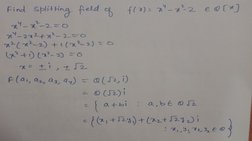 Find Splitting field of f(x) = x⁴-x²-2 ∈ Q[x]
x⁴-x²-2=0
x⁴-2x²+x²-2=0
x²(x²-2)+1(x²-2)=0
(x²+1)(x²-2)=0
x=±i, ±√2
F(a₁,a₂,a₃,a₄) = Q(√2,i)
= Q(√2)i
= {a+bi : a,b∈Q√2
= {(x₁+√2y₁)+(x₂+√2y₂)i
: x₁,y₁,x₂,y₂∈Q}